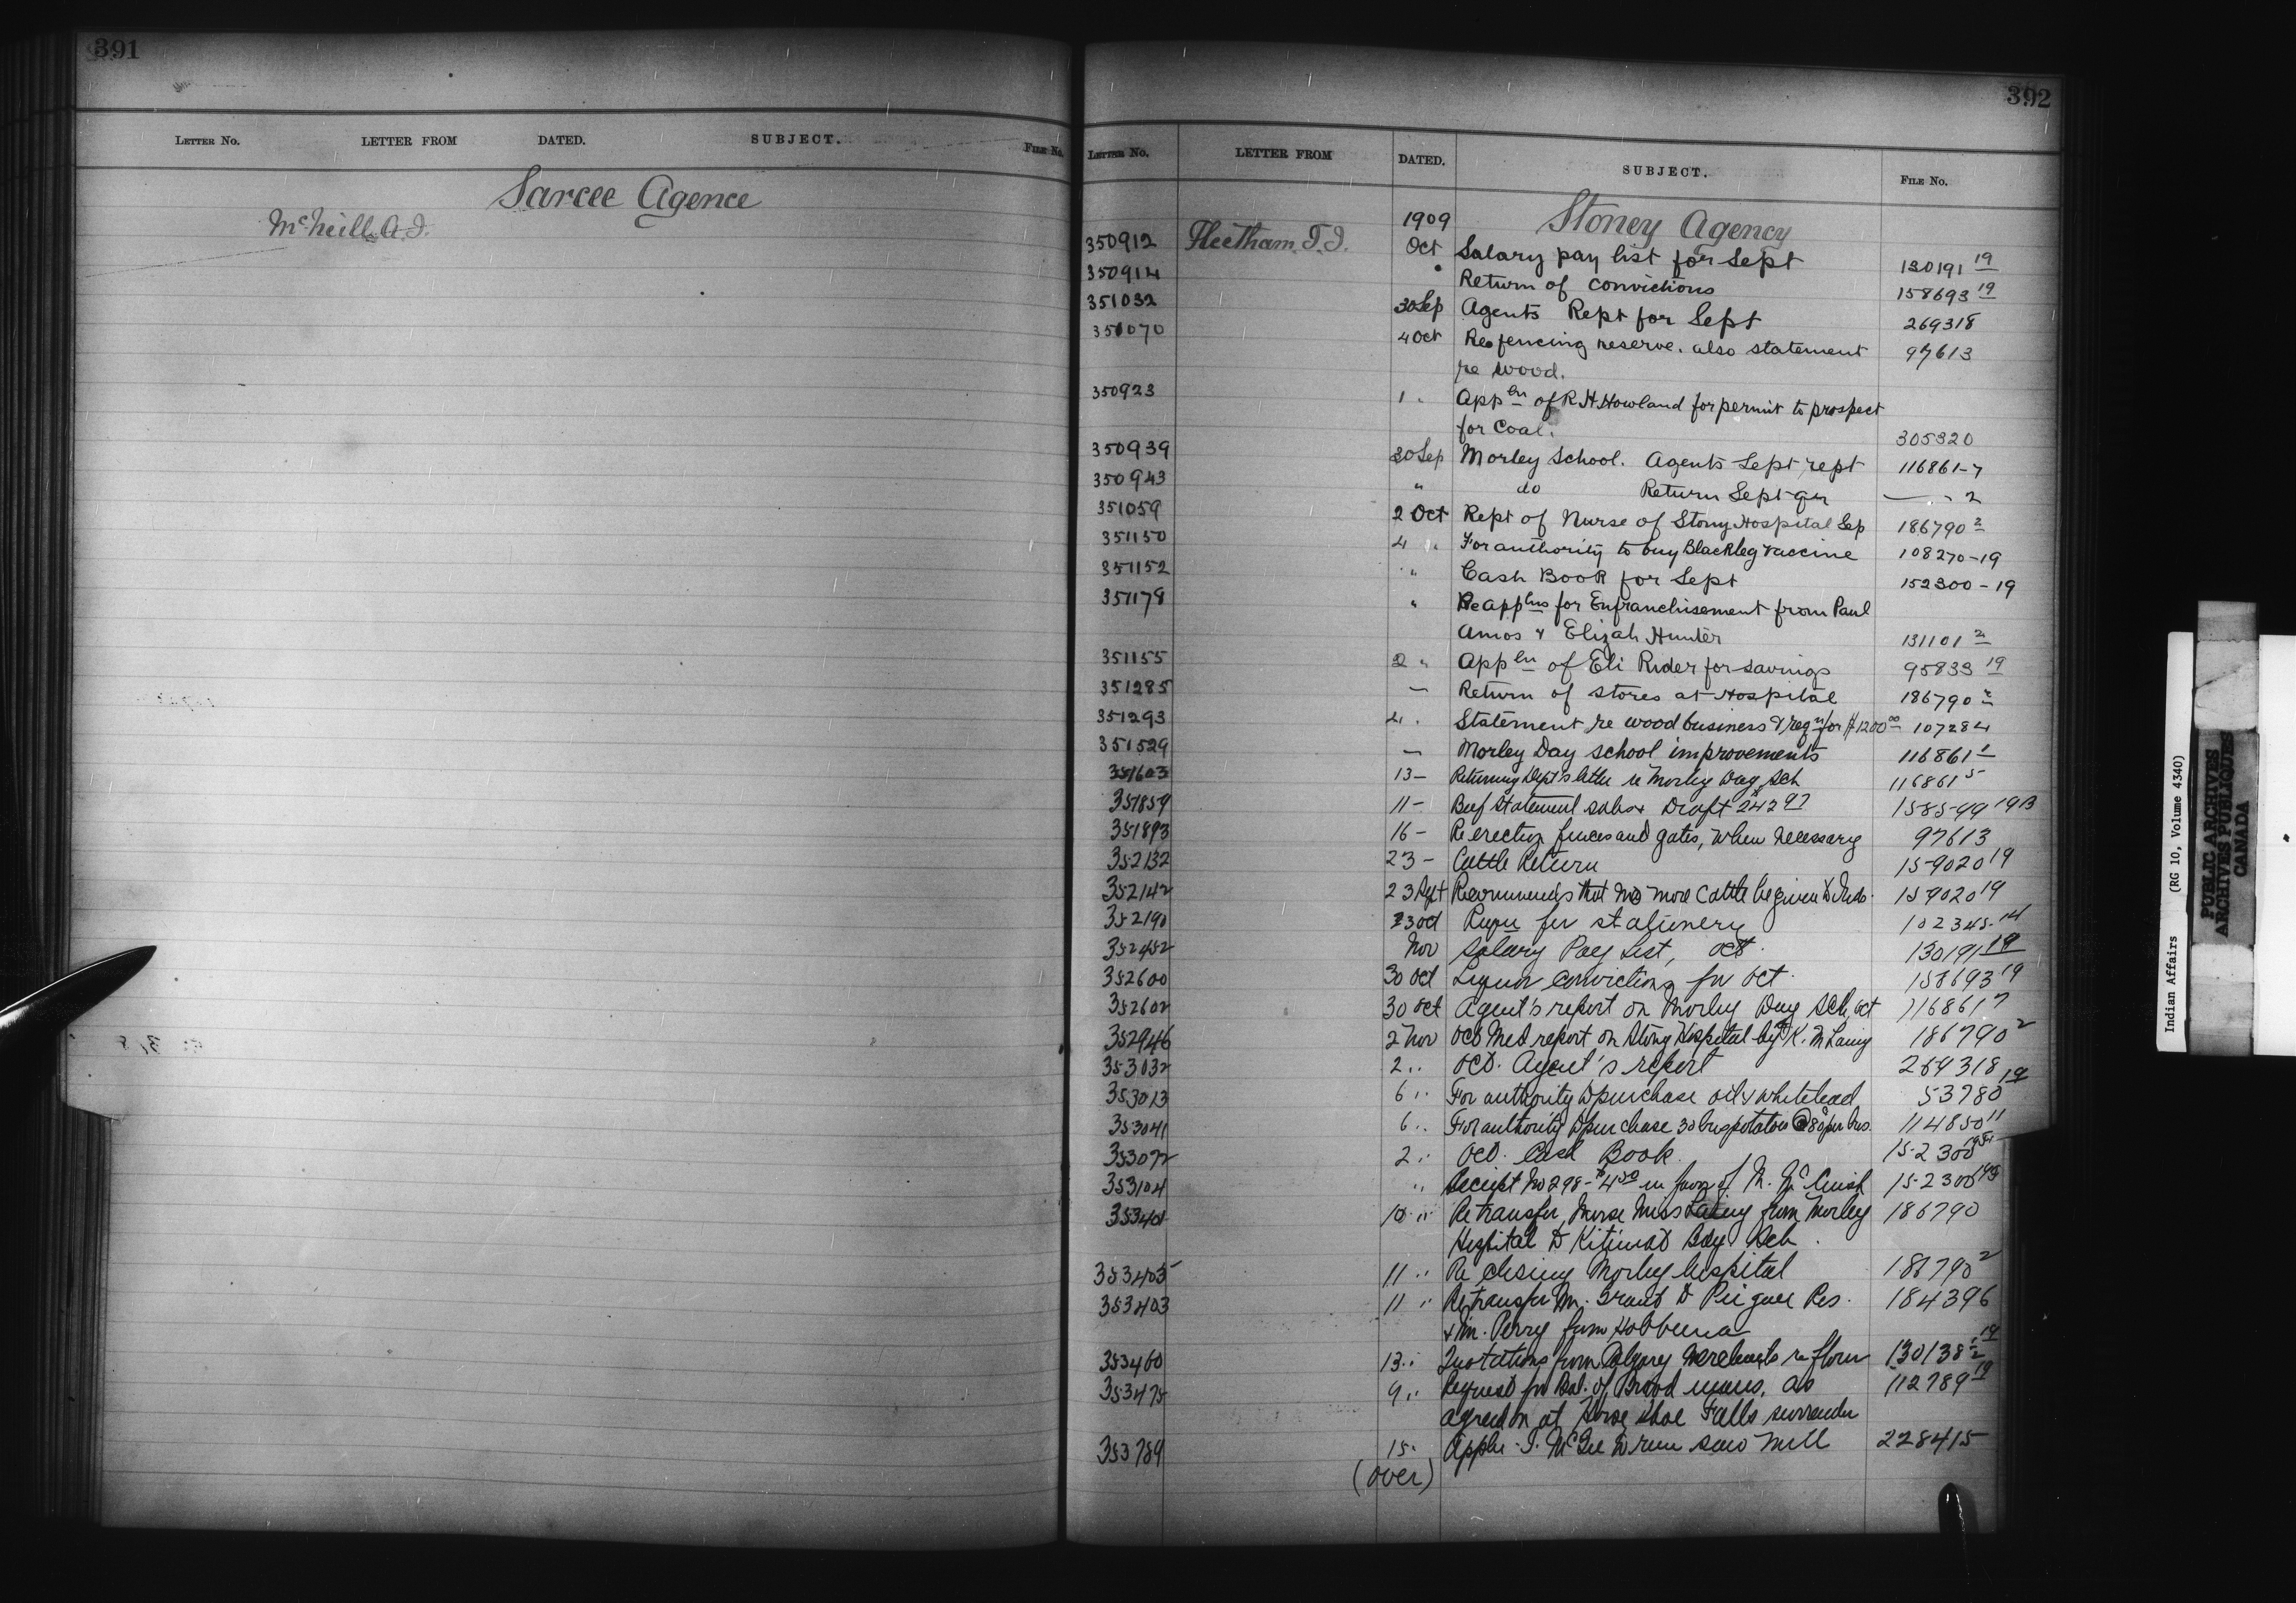 391
LETTER NO. LETTER FROM DATED. SUBJECT. FILE No.
Sarcee Agence
McNeill A.J.
392
LETTER No. LETTER FROM DATED. SUBJECT. FILE No.
1909 Stoney Agency
350912 Fleetham, T.J. Oct Salary pay list for Sept 130191 19
350914 " Return of convictions 158693 19
351032 30 Sep Agents Rept for Sept 269318
351070 4 Oct Re fencing reserve. also statement 97613
re wood.
350923 1 " Appln of R.H. Howland for permit to prospect
for Coal. 305320
350939 30 Sep Morley School. Agents Sept rept 116861-7
350943 " do Return Sept qr — " - 2
351059 2 Oct Rept of Nurse of Stony Hospital Sep 186790 2
351150 4 " For authority to buy Blackleg Vaccine 108270-19
351152 " Cash Book for Sept 152300-19
351178 " Re applns for Enfranchisement from Paul
Amos & Elizah Hunter 131101 2
351155 2 " Appln of Eli Rider for savings 95833 19
351285 — Return of stores at Hospital 186790 2
351293 4 " Statement re wood business & reqn for $1200 00 107284
351529 — Morley Day school improvements 116861 1
351603 13 — Returning Dept's letter re Morley Day Sch 116861 5
351859 11 — Beef Statement sales Draft 242 97 158599 19B
351893 16 — Re erecting fences and gates, when necessary 97613
352132 23 — Cattle Return 159020 19
352142 23 Sept Recommends that no more Cattle be given to Inds. 159020 19
352190 23 Oct Requ for stationery 102345-14
352452 Nov Salary Pay List, Oct. 130191 19
352600 30 Oct Liquor convictions for Oct. 158693 19
352602 30 Oct Agent's report on Morley Day Sch, Oct 116861 7
352946 2 Nov Oct Med report on Stony Hospital by K. M Laing 186790 2
353032 2 " Oct. Agent's report 269318
353013 6 " For authority to purchase oil & whitelead 53780 19
353041 6 " For authority to purchase 30 bus potatoes @ 80c per bus. 114850 11
353072 2 " Oct. Cash Book 152300
353104 " Receipt No 298 - $4 50 in favor of M. 152300
353401 10 " Re transfer, Nurse Miss Laing from Morley 186790
Hospital to Kitimat Day Sch.
353405 11 " Re closing Morley hospital 186790 2
353403 11 " Re transfer Mr. Grant to Peigan Res. 184396
& Mr. Perry from Hobbema
353460 13 " Quotations from Calgary Merchants re flour 130138-2 19
353475 9 " Request for Bal. of Brood mares, as 112789 19
agreed on at Horse Shoe Falls surrender
353789 15 " Appln J. McGee to run saw mill 228415
(over)
Indian Affairs (RG 10, Volume 4340)
PUBLIC ARCHIVES
ARCHIVES PUBLIQUES
CANADA